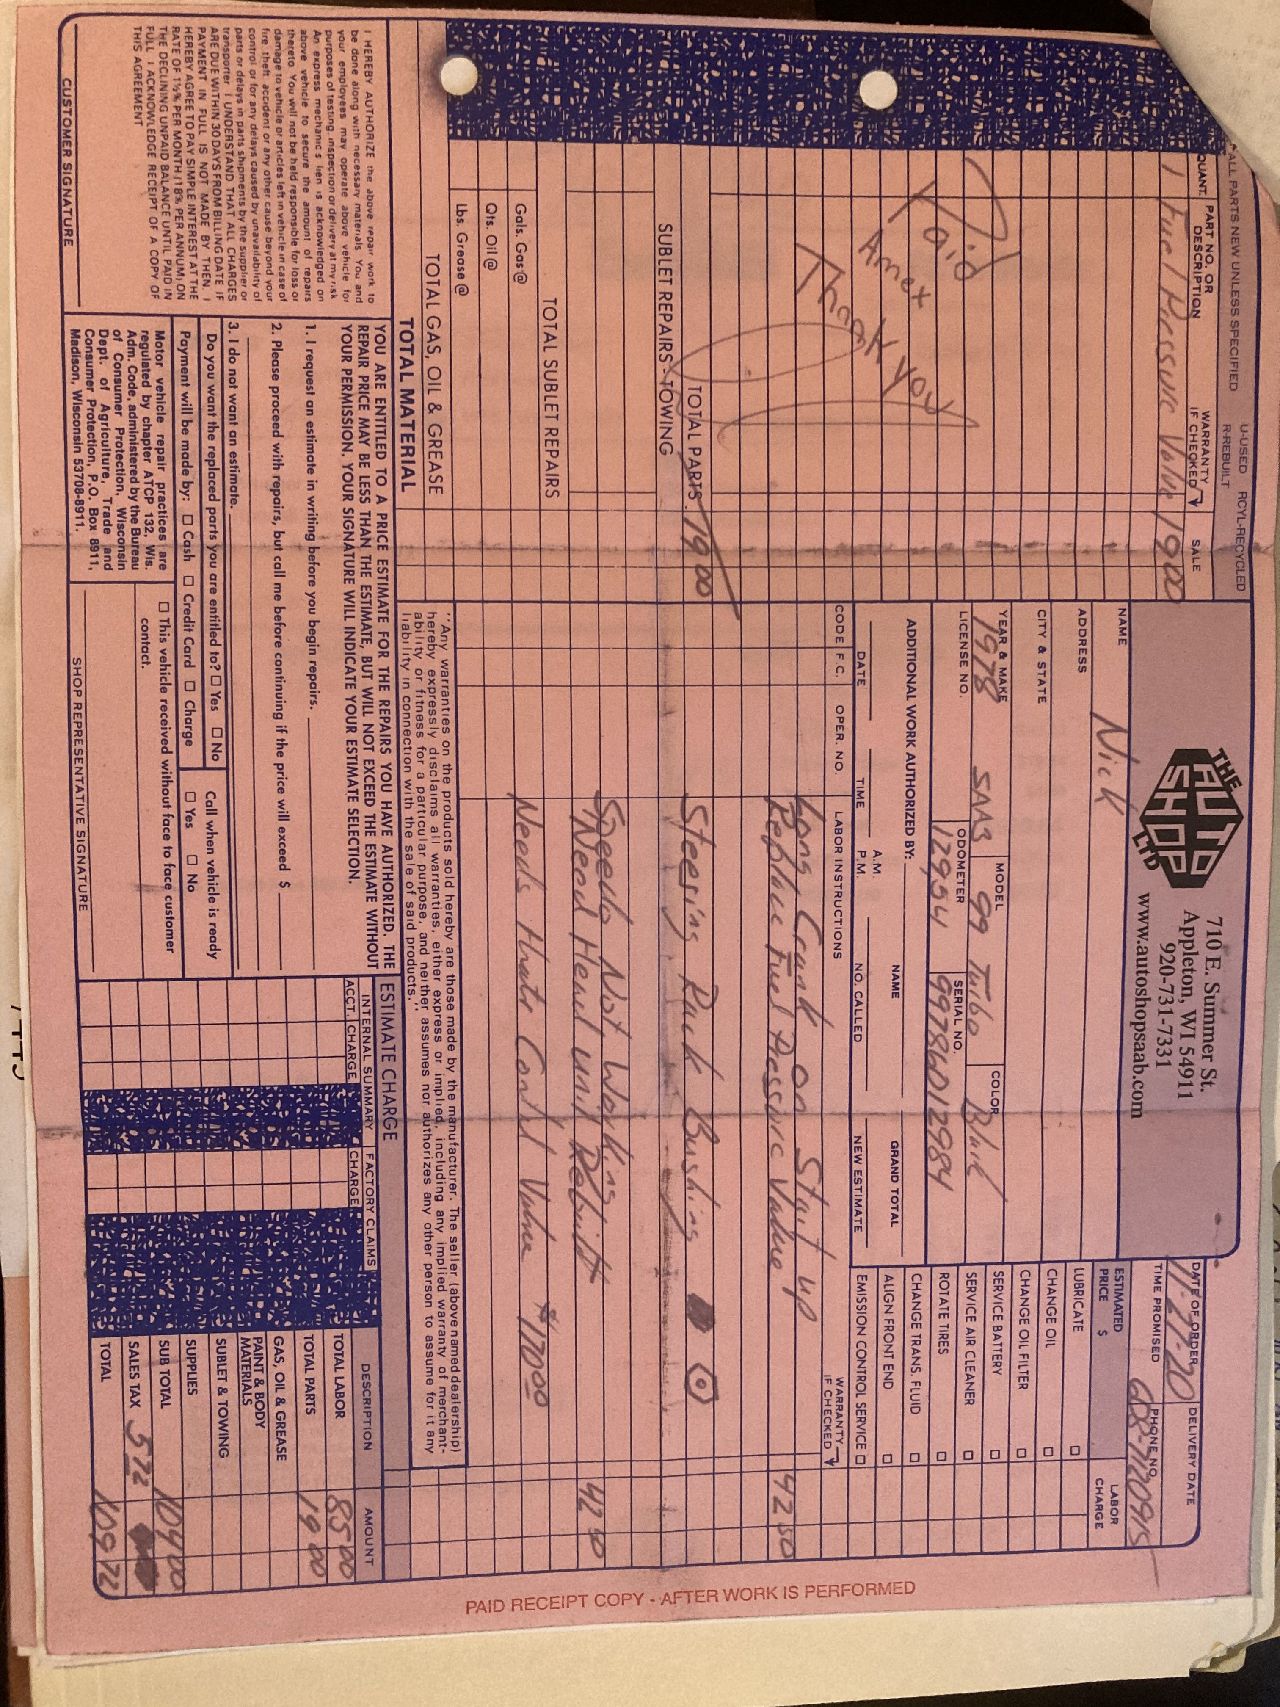 ALL PARTS NEW UNLESS SPECIFIED
U-USED RCYL-RECYCLED
R-REBUILT
QUANT. PART NO. OR DESCRIPTION WARRANTY IF CHECKED SALE
1 Fuel Pressure Valve 19 00
Paid
Amex
Thank you
TOTAL PARTS 19 00
SUBLET REPAIRS - TOWING
TOTAL SUBLET REPAIRS
Gals. Gas @
Qts. Oil @
Lbs. Grease @
TOTAL GAS, OIL & GREASE
TOTAL MATERIAL
THE AUTO SHOP LTD
710 E. Summer St.
Appleton, WI 54911
920-731-7331
www.autoshopsaab.com
NAME Nick
ADDRESS
CITY & STATE
YEAR & MAKE 1978 SAAB MODEL 99 Turbo COLOR Black
LICENSE NO. ODOMETER 129,954 SERIAL NO. 99786012984
DATE OF ORDER 11-27-20 DELIVERY DATE
TIME PROMISED PHONE NO.
ESTIMATED PRICE $ LABOR CHARGE
LUBRICATE
CHANGE OIL
CHANGE OIL FILTER
SERVICE BATTERY
SERVICE AIR CLEANER
ROTATE TIRES
CHANGE TRANS. FLUID
ALIGN FRONT END
EMISSION CONTROL SERVICE
ADDITIONAL WORK AUTHORIZED BY: NAME GRAND TOTAL
DATE TIME A.M. P.M. NO. CALLED NEW ESTIMATE
CODE F.C. OPER. NO. LABOR INSTRUCTIONS WARRANTY IF CHECKED
Long Crank on Start up
Replace Fuel Pressure Valve 42 50
Steering Rack Bushing
Speedo Not Working
Need Head unit Rebuilt 42 50
Needs Heater Control Valve $170 00
"Any warranties on the products sold hereby are those made by the manufacturer. The seller (above named dealership)
hereby expressly disclaims all warranties, either express or implied, including any implied warranty of merchant-
ability or fitness for a particular purpose, and neither assumes nor authorizes any other person to assume for it any
liability in connection with the sale of said products."
I HEREBY AUTHORIZE the above repair work to
be done along with necessary materials. You and
your employees may operate above vehicle for
purposes of testing, inspection or delivery at my risk.
An express mechanic's lien is acknowledged on
above vehicle to secure the amount of repairs
thereto. You will not be held responsible for loss or
damage to vehicle or articles left in vehicle in case of
fire, theft, accident or any other cause beyond your
control or for any delays caused by unavailability of
parts or delays in parts shipments by the supplier or
transporter. I UNDERSTAND THAT ALL CHARGES
ARE DUE WITHIN 30 DAYS FROM BILLING DATE. IF
PAYMENT IN FULL IS NOT MADE BY THEN, I
HEREBY AGREE TO PAY SIMPLE INTEREST AT THE
RATE OF 1½% PER MONTH (18% PER ANNUM) ON
THE DECLINING UNPAID BALANCE UNTIL PAID IN
FULL. I ACKNOWLEDGE RECEIPT OF A COPY OF
THIS AGREEMENT
CUSTOMER SIGNATURE
YOU ARE ENTITLED TO A PRICE ESTIMATE FOR THE REPAIRS YOU HAVE AUTHORIZED. THE
REPAIR PRICE MAY BE LESS THAN THE ESTIMATE, BUT WILL NOT EXCEED THE ESTIMATE WITHOUT
YOUR PERMISSION. YOUR SIGNATURE WILL INDICATE YOUR ESTIMATE SELECTION.
1. I request an estimate in writing before you begin repairs.
2. Please proceed with repairs, but call me before continuing if the price will exceed $
3. I do not want an estimate.
Do you want the replaced parts you are entitled to? Yes No
Payment will be made by: Cash Credit Card Charge
Call when vehicle is ready
Yes No
Motor vehicle repair practices are
regulated by chapter ATCP 132, Wis.
Adm. Code, administered by the Bureau
of Consumer Protection, Wisconsin
Dept. of Agriculture, Trade and
Consumer Protection, P.O. Box 8911,
Madison, Wisconsin 53708-8911.
This vehicle received without face to face customer
contact.
SHOP REPRESENTATIVE SIGNATURE
ESTIMATE CHARGE
INTERNAL SUMMARY FACTORY CLAIMS DESCRIPTION AMOUNT
ACCT. CHARGE CHARGE
TOTAL LABOR 85 00
TOTAL PARTS 19 00
GAS, OIL & GREASE
PAINT & BODY MATERIALS
SUBLET & TOWING
SUPPLIES
SUB TOTAL 104 00
SALES TAX 5 72
TOTAL 109 72
PAID RECEIPT COPY - AFTER WORK IS PERFORMED